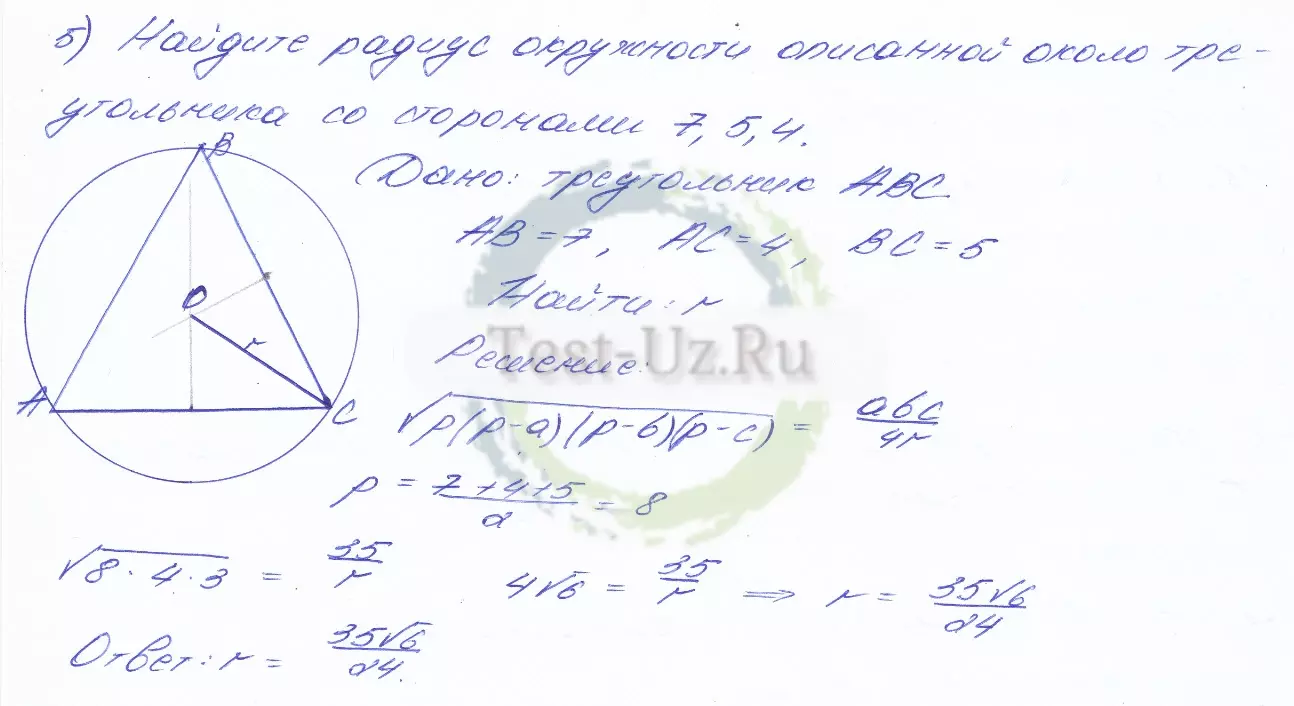 5) Найдите радиус окружности описанной около тре-
угольника со сторонами 7, 5, 4.
B
Дано: треугольник ABC
AB = 7, AC = 4, BC = 5
Найти: r
O
r
Test-Uz.Ru
Решение:
A
C
√p(p-a)(p-b)(p-c) = abc/4r
p = 7+4+5/2 = 8
√8·4·3 = 35/r 4√6 = 35/r => r = 35√6/24
Ответ: r = 35√6/24.